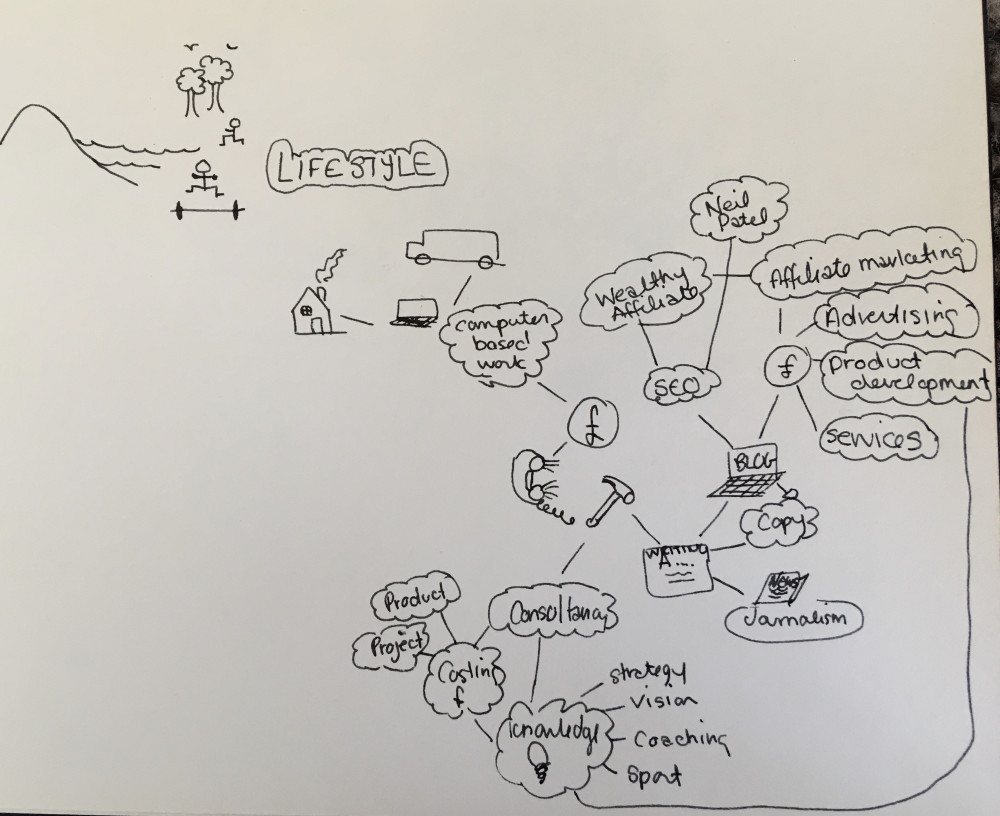 LIFESTYLE
Neil
Patel
Wealthy
Affiliate
Affiliate marketing
Advertising
£
Product
development
Services
SEO
Computer
based
work
£
BLOG
Copy
WRITING
A....
NEWS
Jarnalism
Consultancy
Product
Project
Costing
£
Knowledge
Strategy
Vision
Coaching
Sport